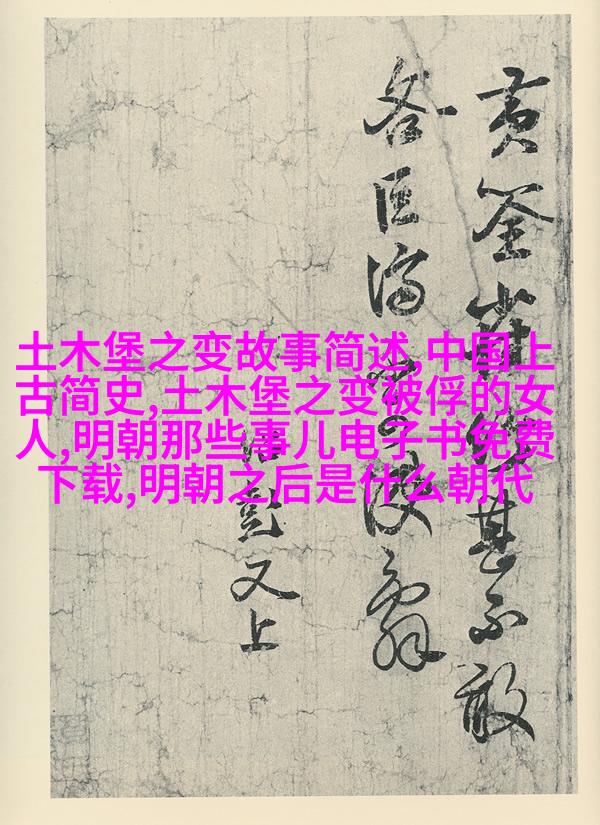 土木堡之变故事简述,中国上
古简史,土木堡之变被俘的女
人,明朝那些事儿电子书免费
下载,明朝之后是什么朝代
黄筌甚不敢
又上